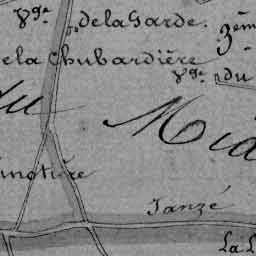 Vge
de la Garde.
3ème
e la Chubardière
Vge du
du
Mid
inotière
Janzé
La L